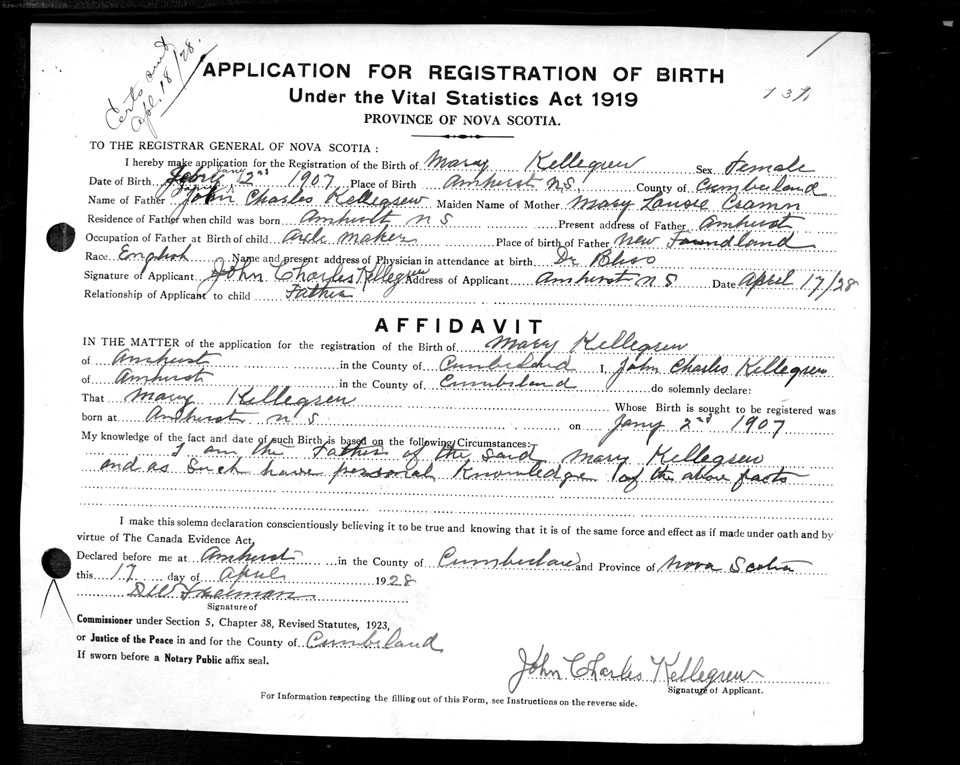 Certs out
Apl. 18/28.
APPLICATION FOR REGISTRATION OF BIRTH
Under the Vital Statistics Act 1919
PROVINCE OF NOVA SCOTIA.
TO THE REGISTRAR GENERAL OF NOVA SCOTIA :
I hereby make application for the Registration of the Birth of Mary Kellegrew Sex Female
Date of Birth Jany 2nd 1907 Place of Birth Amherst N.S. County of Cumberland
Name of Father John Charles Kellegrew Maiden Name of Mother Mary Louise
Residence of Father when child was born Amherst N S Present address of Father Amherst
Occupation of Father at Birth of child axle maker Place of birth of Father New Foundland
Race English Name and present address of Physician in attendance at birth Dr Bliss
Signature of Applicant John Charles Kellegrew Address of Applicant Amherst N S Date April 17/28
Relationship of Applicant to child Father
AFFIDAVIT
IN THE MATTER of the application for the registration of the Birth of Mary Kellegrew
of Amherst in the County of Cumberland I, John Charles Kellegrew
of Amherst in the County of Cumberland do solemnly declare:
That Mary Kellegrew Whose Birth is sought to be registered was
born at Amherst N S on Jany 2nd 1907
My knowledge of the fact and date of such Birth is based on the following Circumstances:
I am the Father of the said Mary Kellegrew
and as such have personal knowledge of the above facts
I make this solemn declaration conscientiously believing it to be true and knowing that it is of the same force and effect as if made under oath and by
virtue of The Canada Evidence Act,
Declared before me at Amherst in the County of Cumberland and Province of Nova Scotia
this 17 day of April 1928
Freeman
Signature of
Commissioner under Section 5, Chapter 38, Revised Statutes, 1923,
or Justice of the Peace in and for the County of Cumberland
If sworn before a Notary Public affix seal.
John Charles Kellegrew
Signature of Applicant.
For Information respecting the filling out of this Form, see Instructions on the reverse side.